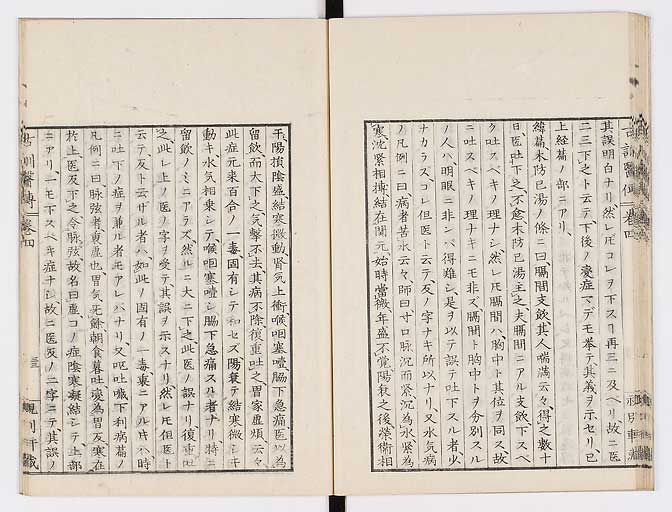 其誤明白ナリ然レ𪜈コレヲ下スヿ再三ニ及ベリ故ニ医
二三下之ト云テ下後ノ変症マデモ挙テ其義ヲ示セリ已
上経篇ノ部ニアリ
緯篇木防已湯ノ條ニ曰膈間支飲其人喘満云々得之数十
日医吐下之不愈木防已湯主之夫膈間ニアル支飲下スベ
ク吐スベキノ理ナシ然レ𪜈膈間ハ胸中ト其位ヲ同ス故
ニ吐スベキノ理ナキニモ非ズ膈間ト胸中トヲ分別スル
ノ人ハ明眼ニ非ンバ得難シ是ヲ以テ誤テ吐下スル者少
ナカラズコレ但医ト云テ反ノ字ナキ所以ナリ又水気病
ノ凡例ニ曰病者苦水云々師曰寸口脉沉而緊沉為水緊為
寒沈緊相摶結在関元始時當微年盛不覚陽衰之後榮衛相
干陽損陰盛結寒微動腎気上衝喉咽塞噎脇下急痛医以為
留飲而大下之気撃不去其病不除後重吐之胃家虚煩云々
此症元来百合ノ一毒固有シテ和セズ陽衰テ結寒微シキ
動キ水気相乗シテ喉咽塞噎シ脇下急痛スル者ナリ特ニ
留飲ノミニアラズ然ルニ大ニ下之此医ノ誤ナリ復重吐
之此レ上ノ医ノ字ヲ受テ其誤ヲ示スナリ然レ𪜈但医ト
云テ反ト云ザル者ハ如此ノ固有ノ一毒裏ニアル𪜈ハ時
ニ吐下ノ症ヲ兼ル者モアレバナリ又呕吐噦下利病篇ノ
凡例ニ曰脉弦者虚也胃気無餘朝食暮吐変為胃反寒在
於上医反下之令脉弦故名曰虚コノ症陰寒凝結シテ上部
ニアリ一モ下スベキ症ナシ故ニ医反ノ二字ニテ其誤ノ
古訓醫傳 卷四